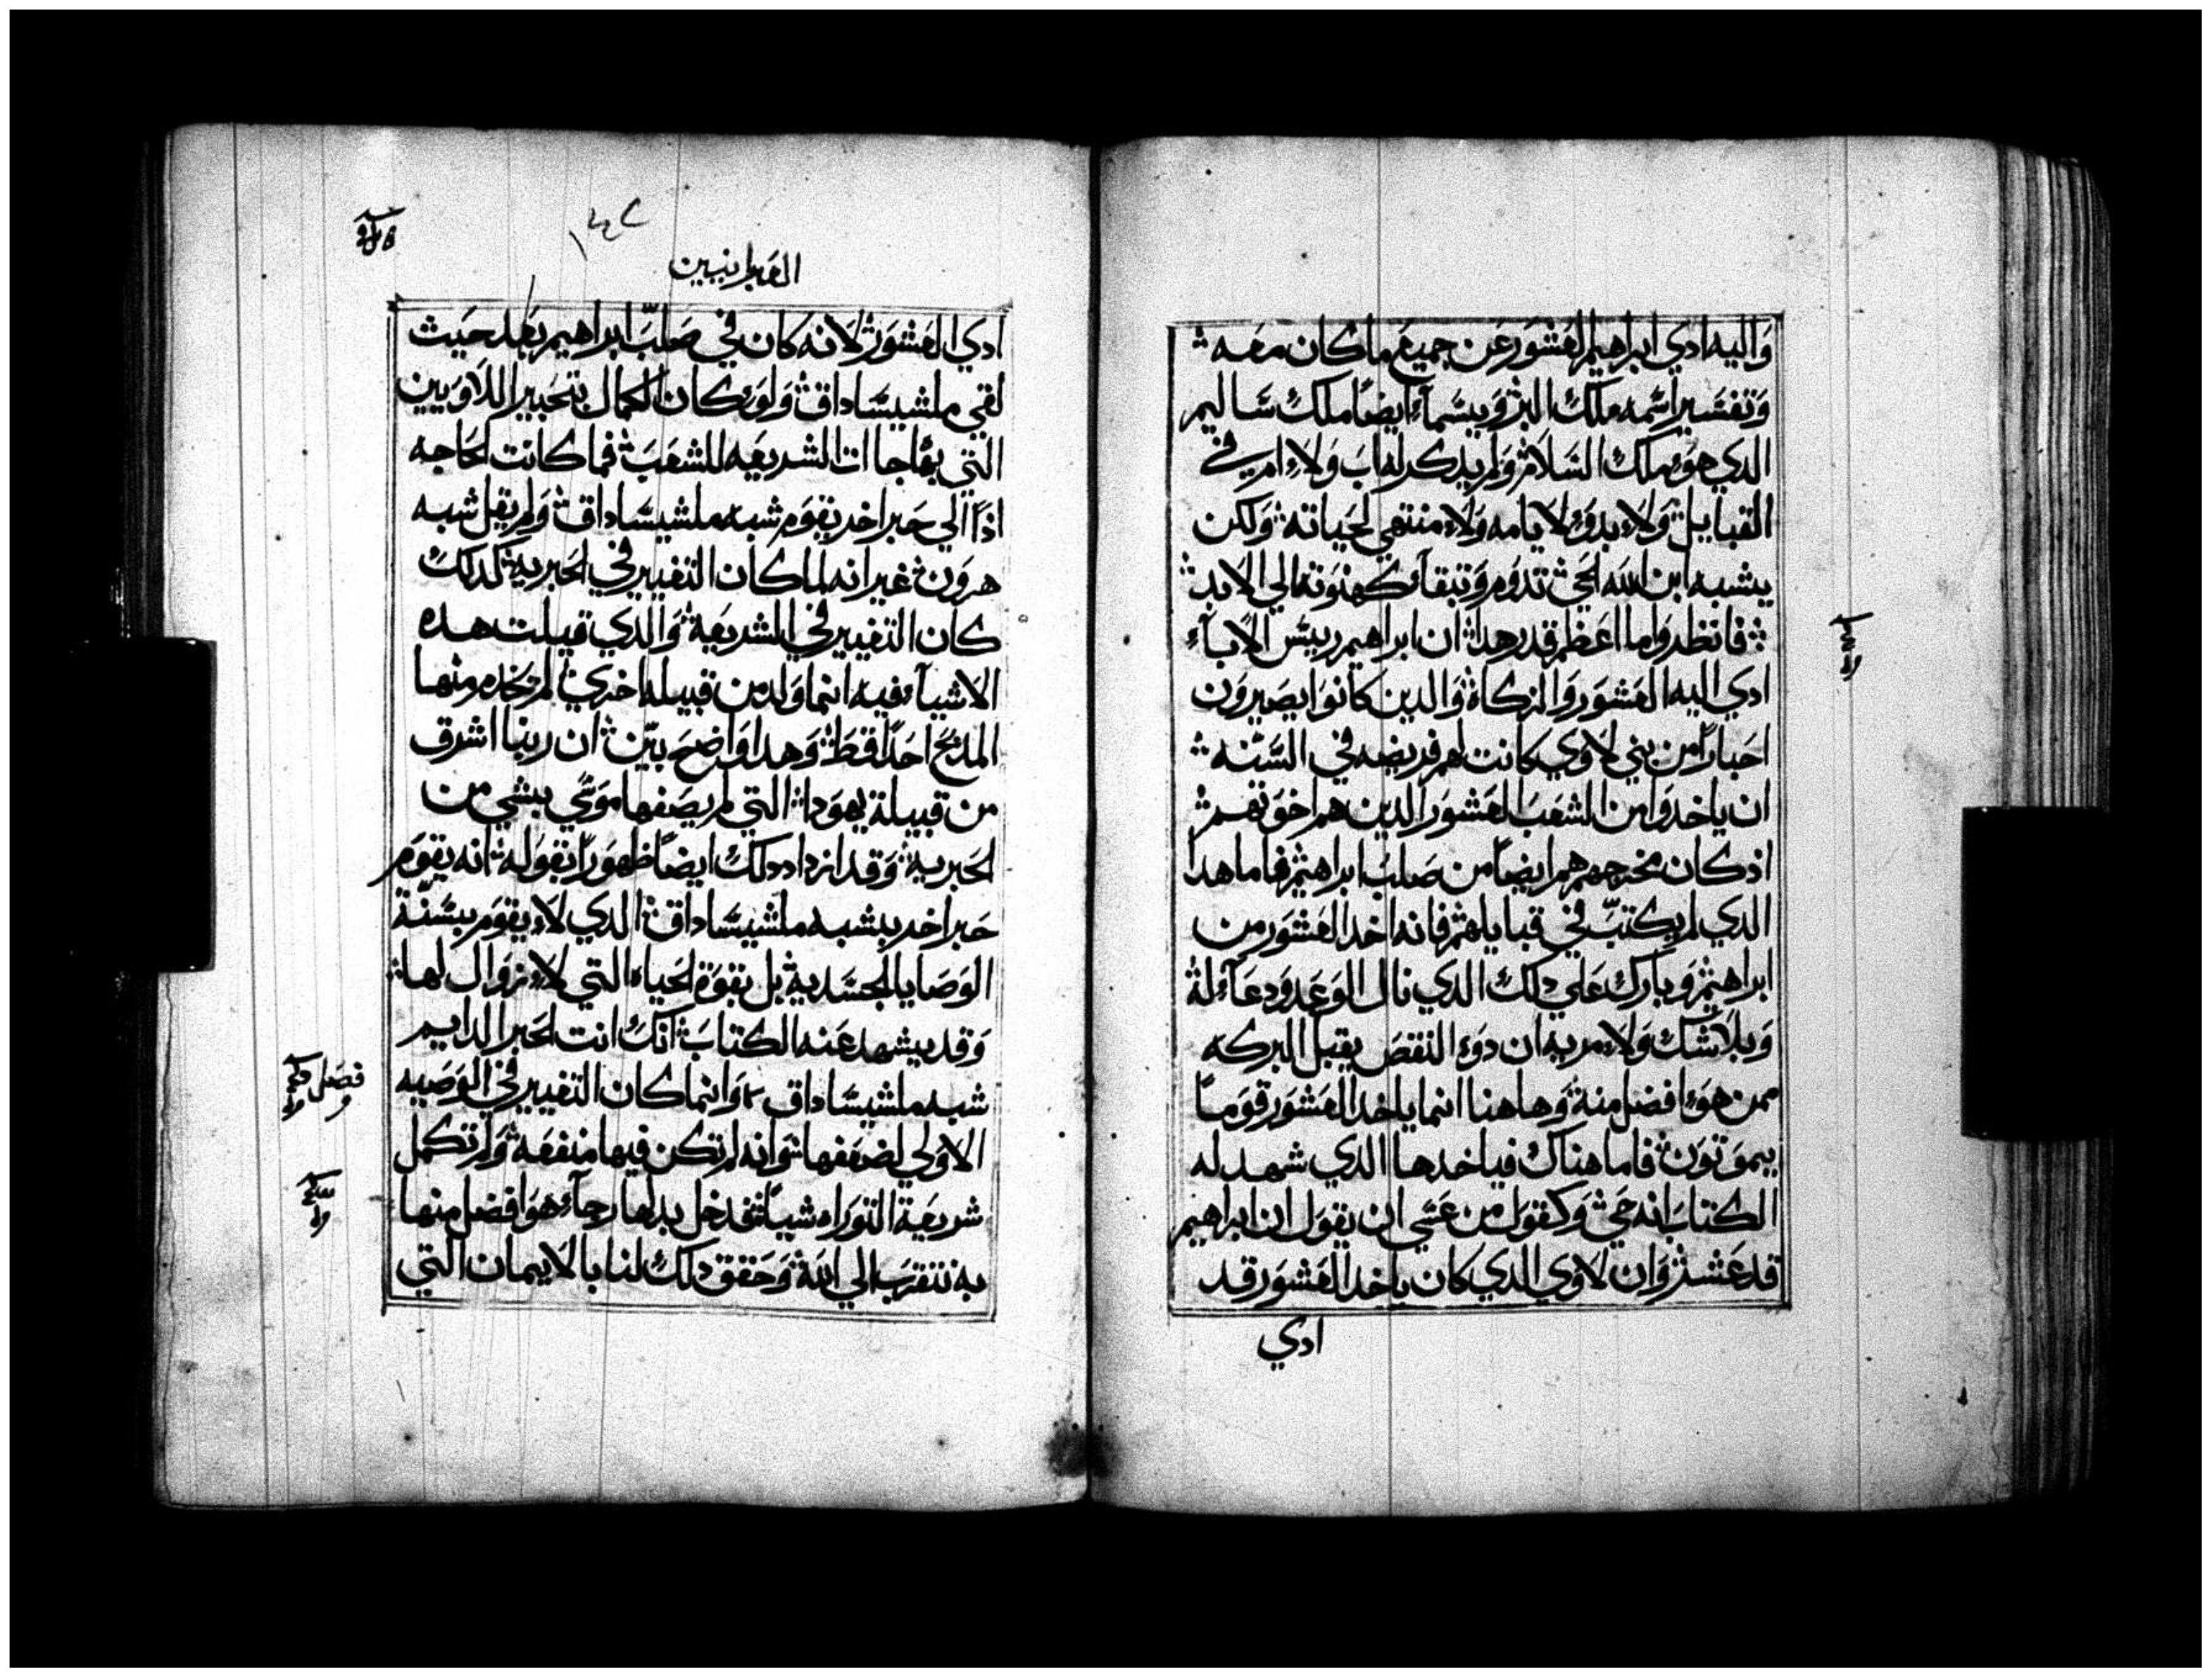 وَاليه ادي ابراهيم العَشور عَن جميعَ ما كان معَه
وَتفسَير اسَمه ملك البر وَيسَمآء ايضاً ملك سَاليم
الدي هوَء ملك السَلام وَلم يدكر له ابَ وَلاء ام في
القبايل وَلاء بدوَء لايامه وَلاء منتهي لحَياته وَلكن
يشبه ابن الله الحَي تدوَم وَتبقآء كهنوَته الي الابد
فانظروَا ما اعَظم قدر هدا ان ابراهيم رييسَ الابآء
ادي اليه العَشوَر وَالزكاة وَالدين كانوَا يصَيروَن
احَباراً من بني لاوَي كانت لهم فريضه في السَنه
ان ياخدوَا من الشعَبَ العَشوَر الدين هم اخوَتهم
اذ كان مخرجهم هم ايضاً من صَلبَ ابراهيم فاما هدا
الدي لم يكتبّ في قبايلهم فانه اخد العَشوَر من
ابراهيم وَبارك عَلي دلك الدي نال الوَعَد وَدعَآء له
وَبلا شك وَلاء مريه ان دوَء النقصَ يقبل البركه
ممن هوَء افضل منه وَهاهنا انما ياخد العَشوَر قوَماً
يموَتوَن فاما هناك فياخدها الدي شهد له
الكتابَ انه حَي وَكقوَل من عَسَي ان يقوَل ان ابراهيم
قد عَشر وَان لاوَي الدي كان ياخد العَشوَر قد
ادي
العَبرانيين
ادي العَشوَر لانه كان في صَلبّ ابراهيم بعَد حَيث
لقي ملشيسَاداق وَلوَء كان الكمال بتحَبير اللاوَيين
التي بها جاات الشريعَه للشعَبَ فما كانت الحَاجه
اذاً الي حَبر اخر يقوَم شبه ملشيسَاداق وَلم يقل شبه
هروَن غير انه لما كان التغيير في الحَبريه كدلك
كان التغيير في الشريعَة وَالدي قيلت هده
الاشيآء فيه انما وَلد من قبيله اخري لم يخدم منها
المدبحَ احَداً قط وَهدا وَاضحَ بيّن ان ربنا اشرق
من قبيلة يهوَدا التي لم يصَفها موَسَي بشي من
الحَبرية وَقد ازداد دلك ايضاً ظهوَراً بقوَله انه يقوَم
حَبر اخر يشبه ملشيسَاداق الدي لاء يقوَم بسَنّة
الوَصَايا الجسَدية بل بقوَة الحَياه التي لاء زوَال لها
وَقد يشهد عَنه الكتابَ انك انت الحَبر الدايم
شبه ملشيسَاداق وَانما كان التغيير في الوَصَيه
الاوَلي لضعَفها وَانه لم تكن فيها منفعَة وَلم تكمل
شريعَة التوَراه شياً فدخل بدلها رجآء هوَ افضل منها
به نتقربَ الي الله وَحَقق دلك لنا بالايمان التي
فصَل